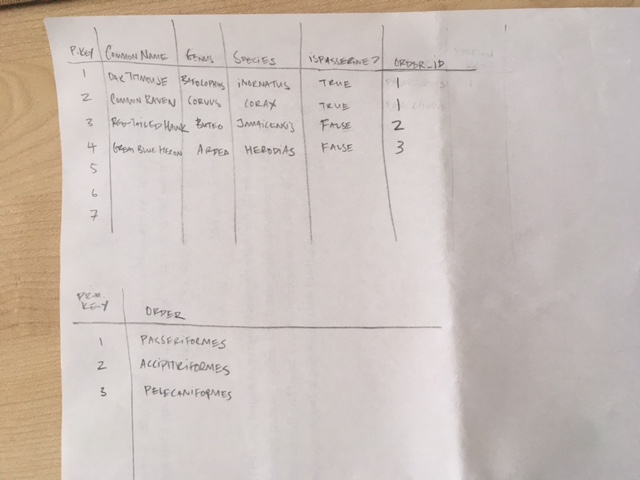 P.KEY COMMON NAME GENUS SPECIES ISPASSERINE? ORDER_ID
1 OAK TITMOUSE BAEOLOPHUS INORNATUS TRUE 1
2 COMMON RAVEN CORVUS CORAX TRUE 1
3 RED-TAILED HAWK BUTEO JAMAICENSIS FALSE 2
4 GREAT BLUE HERON ARDEA HERODIAS FALSE 3
5
6
7
KEY ORDER
1 PASSERIFORMES
2 ACCIPITRIFORMES
3 PELECANIFORMES